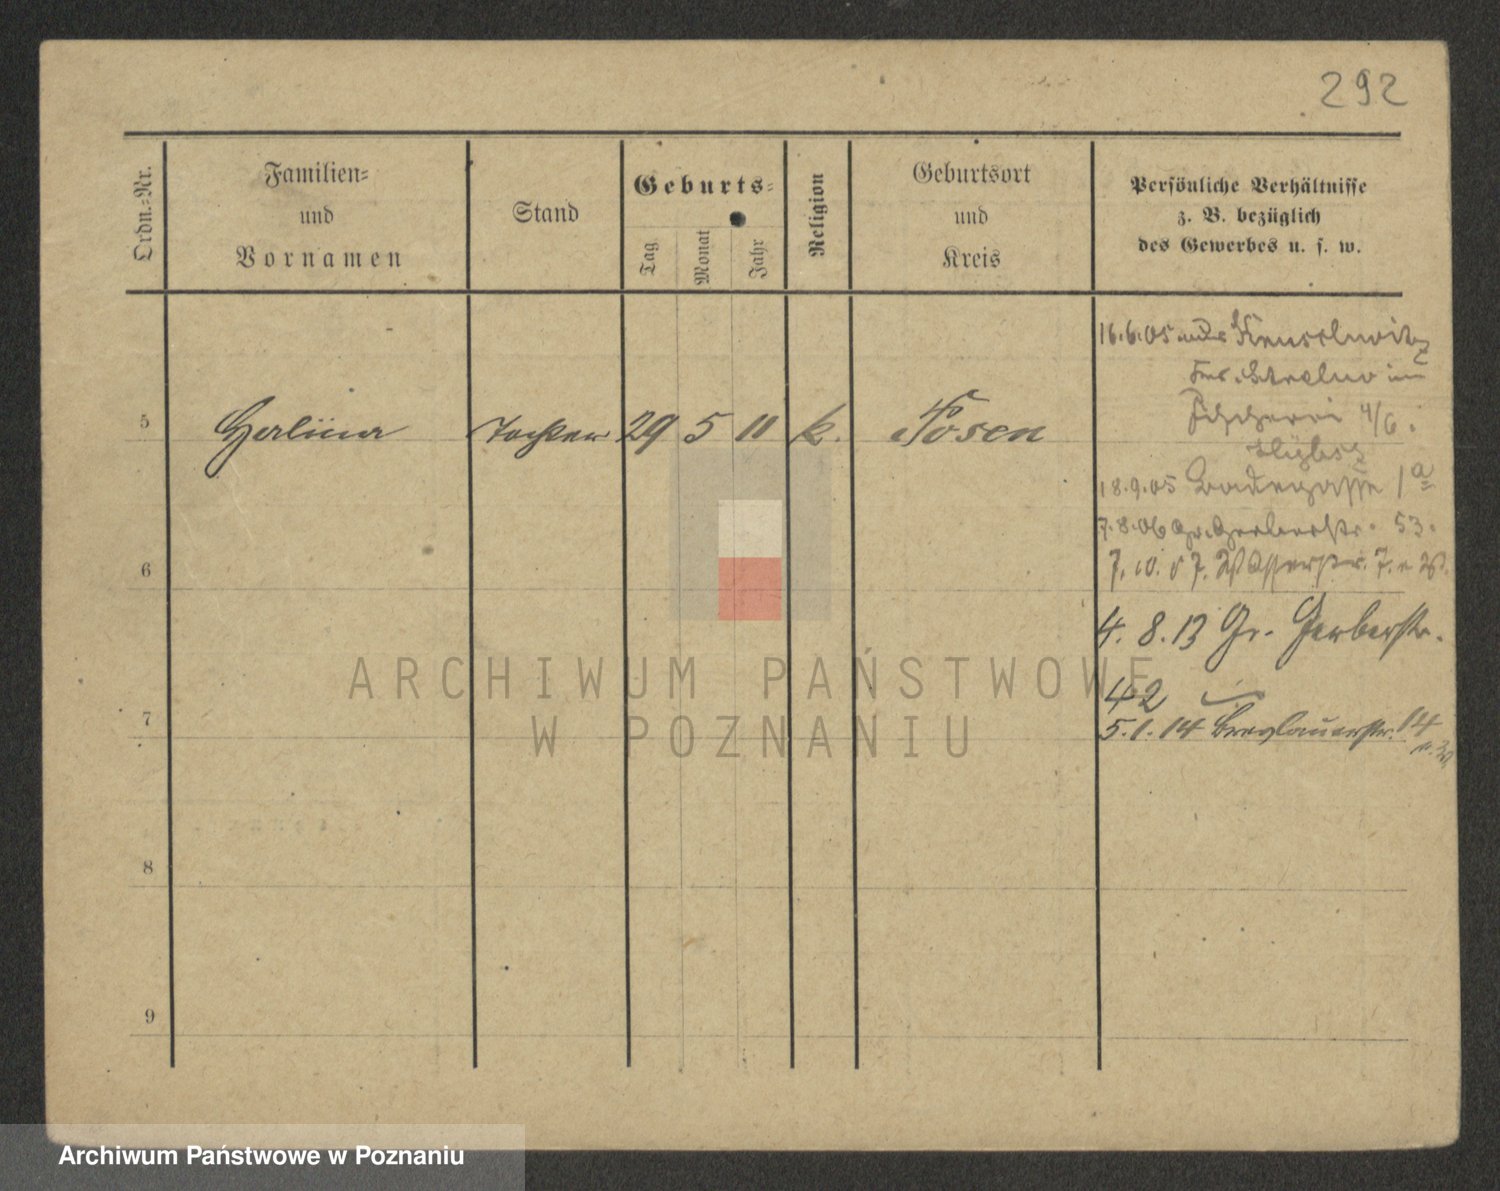 292
Ordn.-Nr.
Familien-
und
Vornamen
Stand
Geburts-
Tag
Monat
Jahr
Religion
Geburtsort
und
Kreis
Persönliche Verhältnisse
z. B. bezüglich
des Gewerbes u. s. w.
16.6.05
4/6.
5 Halina Tochter 29 5 11 k. Posen
18.9.05 Badegasse 1a
7.8.06 Gr. Gerberstr. 53.
6
7.10. Wasserstr. 7.
4. 8. 13 Gr. Gerberstr.
42
7
5.1.14 Breslauerstr. 14
8
9
ARCHIWUM PAŃSTWOWE
W POZNANIU
Archiwum Państwowe w Poznaniu